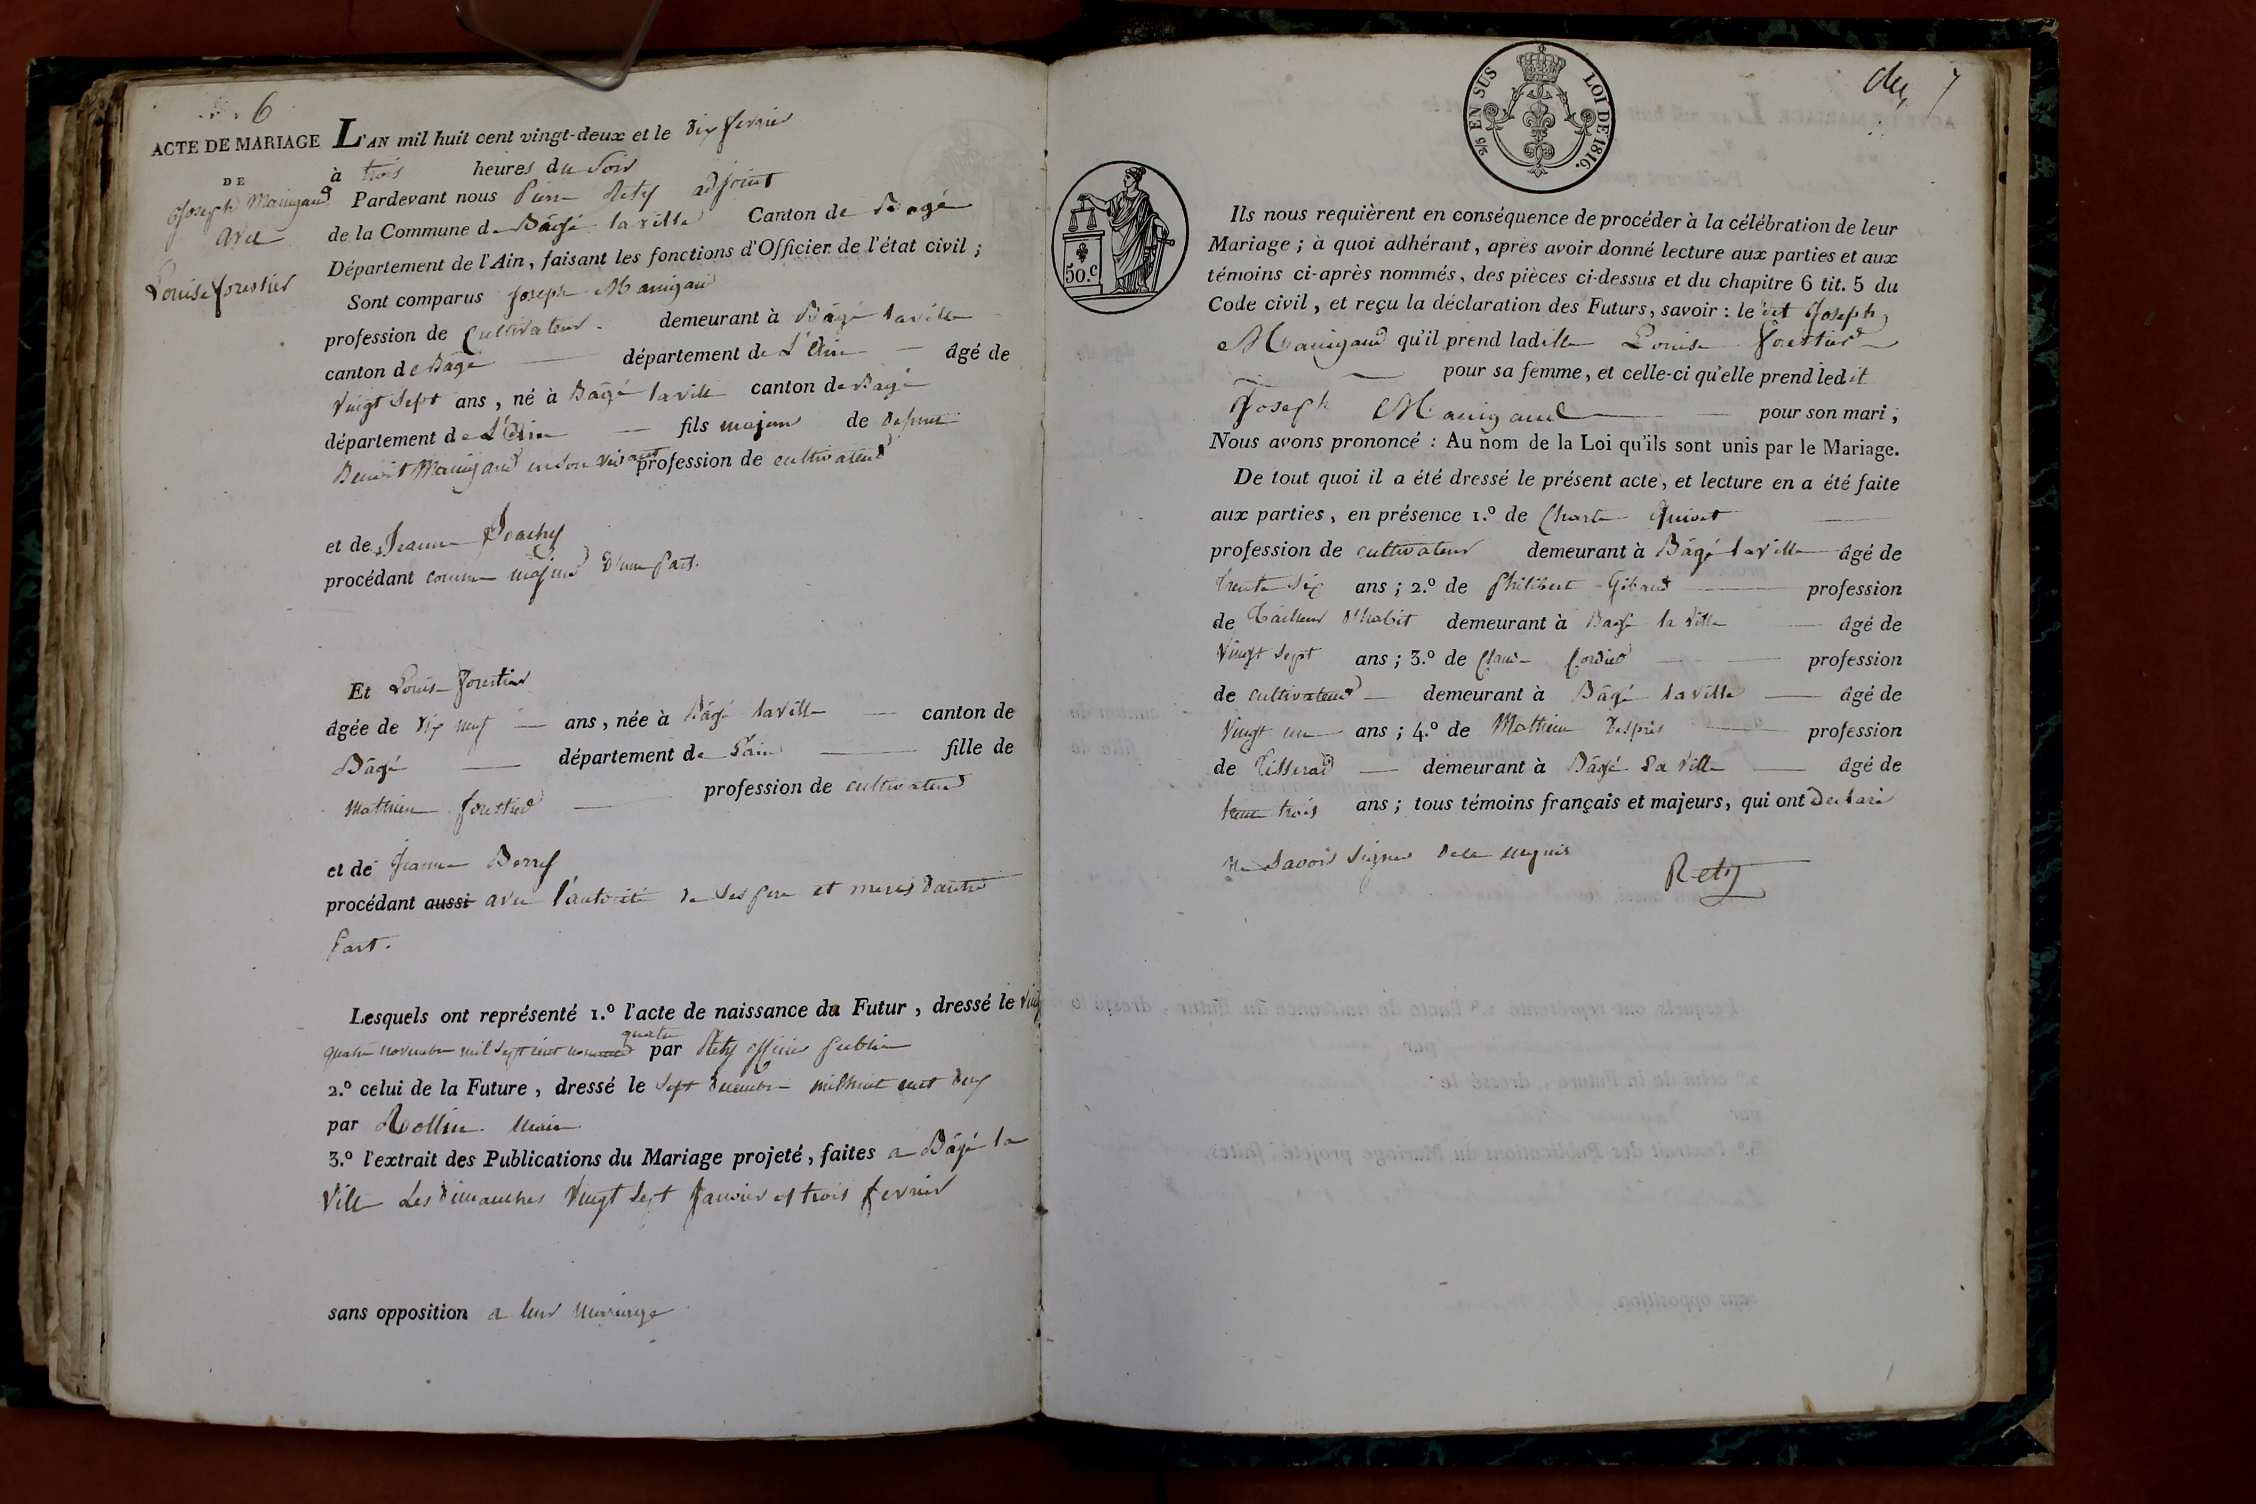 6
ACTE DE MARIAGE
DE
Joseph Manigand
avec
Louise forestier
L'AN mil huit cent vingt-deux et le dix fevrier
à trois heures du soir
Pardevant nous Pierre Rety adjoint
de la Commune de Bâgé la ville Canton de Bagé
Département de l'Ain, faisant les fonctions d'Officier de l'état civil ;
Sont comparus Joseph Manigand
profession de Cultivateur demeurant à Bâgé laville
canton de Bagé département de L'Ain âgé de
vingt sept ans, né à Bâgé laville canton de Bagé
département de L'Ain fils majeur de defunt
Benoit Manigand en son vivant profession de cultivateur
et de Jeanne
procédant comme majeur d'une part.
Et Louise forestier
âgée de dix neuf ans, née à Bâgé laville canton de
Bâgé département de Lain fille de
Mathieu forestier profession de cultivateur
et de Jeanne Berry
procédant aussi avec l'autorité de ses pere et meres dautre
part.
Lesquels ont représenté 1.º l'acte de naissance du Futur, dressé le vingt
quatre novembre mil sept cent quatre par Rety officier public
2.º celui de la Future, dressé le sept decembre mil huit cent deux
par Rollin maire
3.º l'extrait des Publications du Mariage projeté, faites a Bâgé la
ville Les dimanches vingt sept Janvier et trois fevrier
sans opposition a leur mariage
7
2/5 EN SUS LOI DE 1816.
50.c
Ils nous requièrent en conséquence de procéder à la célébration de leur
Mariage ; à quoi adhérant, après avoir donné lecture aux parties et aux
témoins ci-après nommés, des pièces ci-dessus et du chapitre 6 tit. 5 du
Code civil, et reçu la déclaration des Futurs, savoir : le dit Joseph
Manigand qu'il prend ladille Louise forestier
pour sa femme, et celle-ci qu'elle prend ledit
Joseph Manigand pour son mari ;
Nous avons prononcé : Au nom de la Loi qu'ils sont unis par le Mariage.
De tout quoi il a été dressé le présent acte, et lecture en a été faite
aux parties, en présence 1.º de
profession de cultivateur demeurant à Bâgé laville âgé de
trente six ans ; 2.º de Philibert Gibaud profession
de Tailleur d'habit demeurant à Bagé la ville âgé de
vingt sept ans ; 3.º de Claude Cordier profession
de cultivateur demeurant à Bâgé laville âgé de
vingt un ans ; 4.º de Mathieu Despres profession
de Tisserad demeurant à Bâgé la ville âgé de
trente trois ans ; tous témoins français et majeurs, qui ont declaré
ne savoir signer
Rety